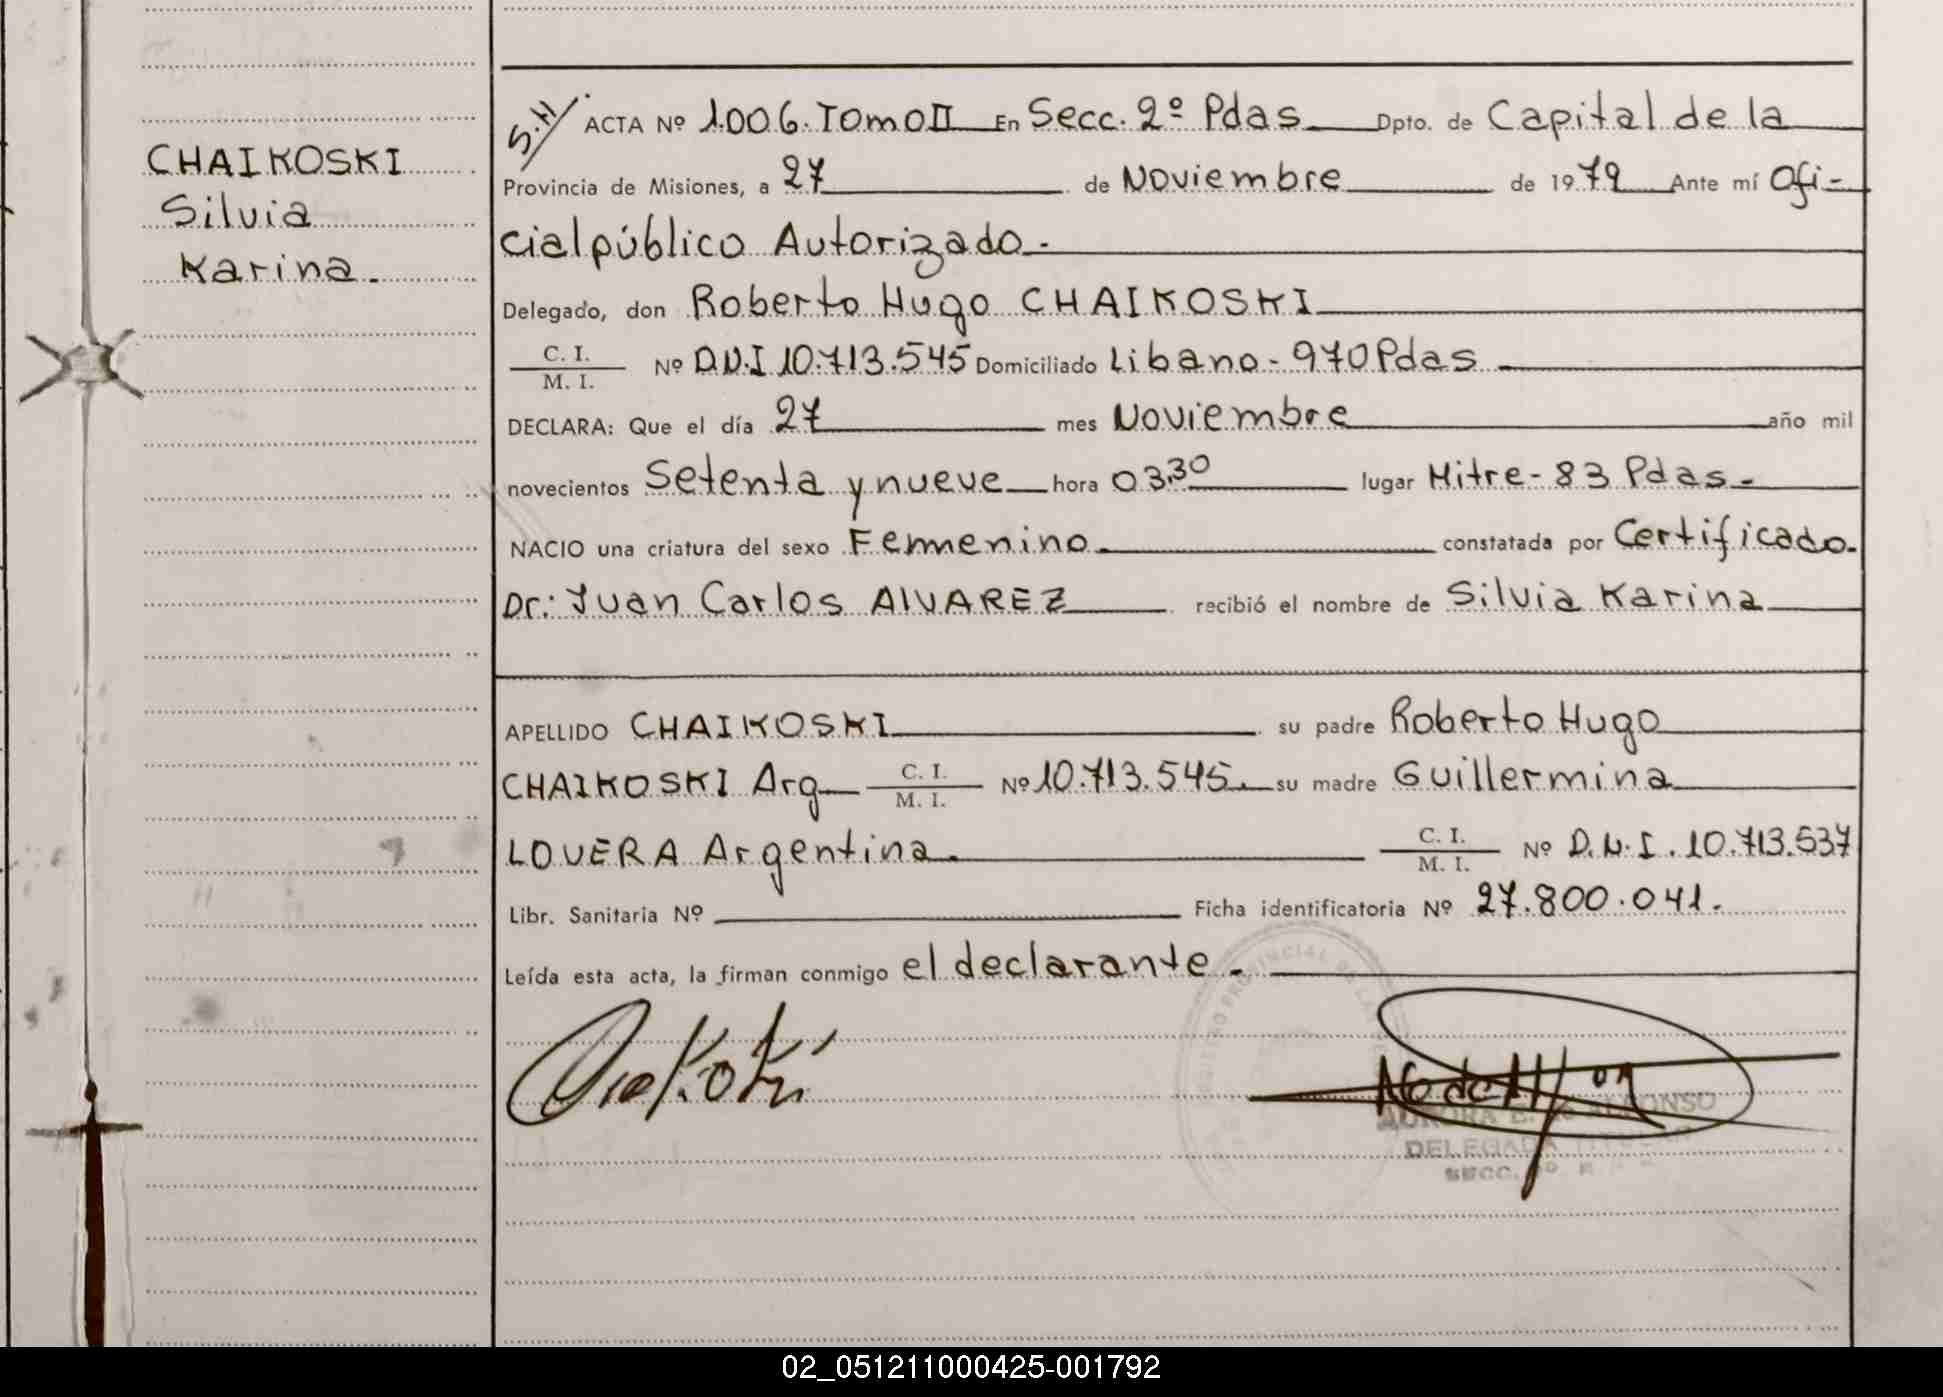 CHAIKOSKI
Silvia
Karina.
S.H/ ACTA Nº 1.006. Tomo II En Secc. 2º Pdas. Dpto. de Capital de la
Provincia de Misiones, a 27 de Noviembre de 1979 Ante mí Ofi-
cial público Autorizado.-
Delegado, don Roberto Hugo CHAIKOSKI
C. I.
M. I. Nº D.N.I 10.713.545 Domiciliado Libano - 970 Pdas
DECLARA: Que el día 27 mes Noviembre año mil
novecientos Setenta y nueve hora 03,30 lugar Mitre - 83 Pdas.-
NACIO una criatura del sexo Femenino. constatada por Certificado.
Dr: Juan Carlos ALVAREZ recibió el nombre de Silvia Karina
APELLIDO CHAIKOSKI su padre Roberto Hugo
CHAIKOSKI Arg C. I. M. I. Nº 10.713.545. su madre Guillermina
LOVERA Argentina. C. I. M. I. Nº D.N.I. 10.713.537
Libr. Sanitaria Nº Ficha identificatoria Nº 27.800.041.
Leída esta acta, la firman conmigo el declarante.
AURORA E. de ALFONSO
DELEGADA TITULAR
SECC.
02_051211000425-001792